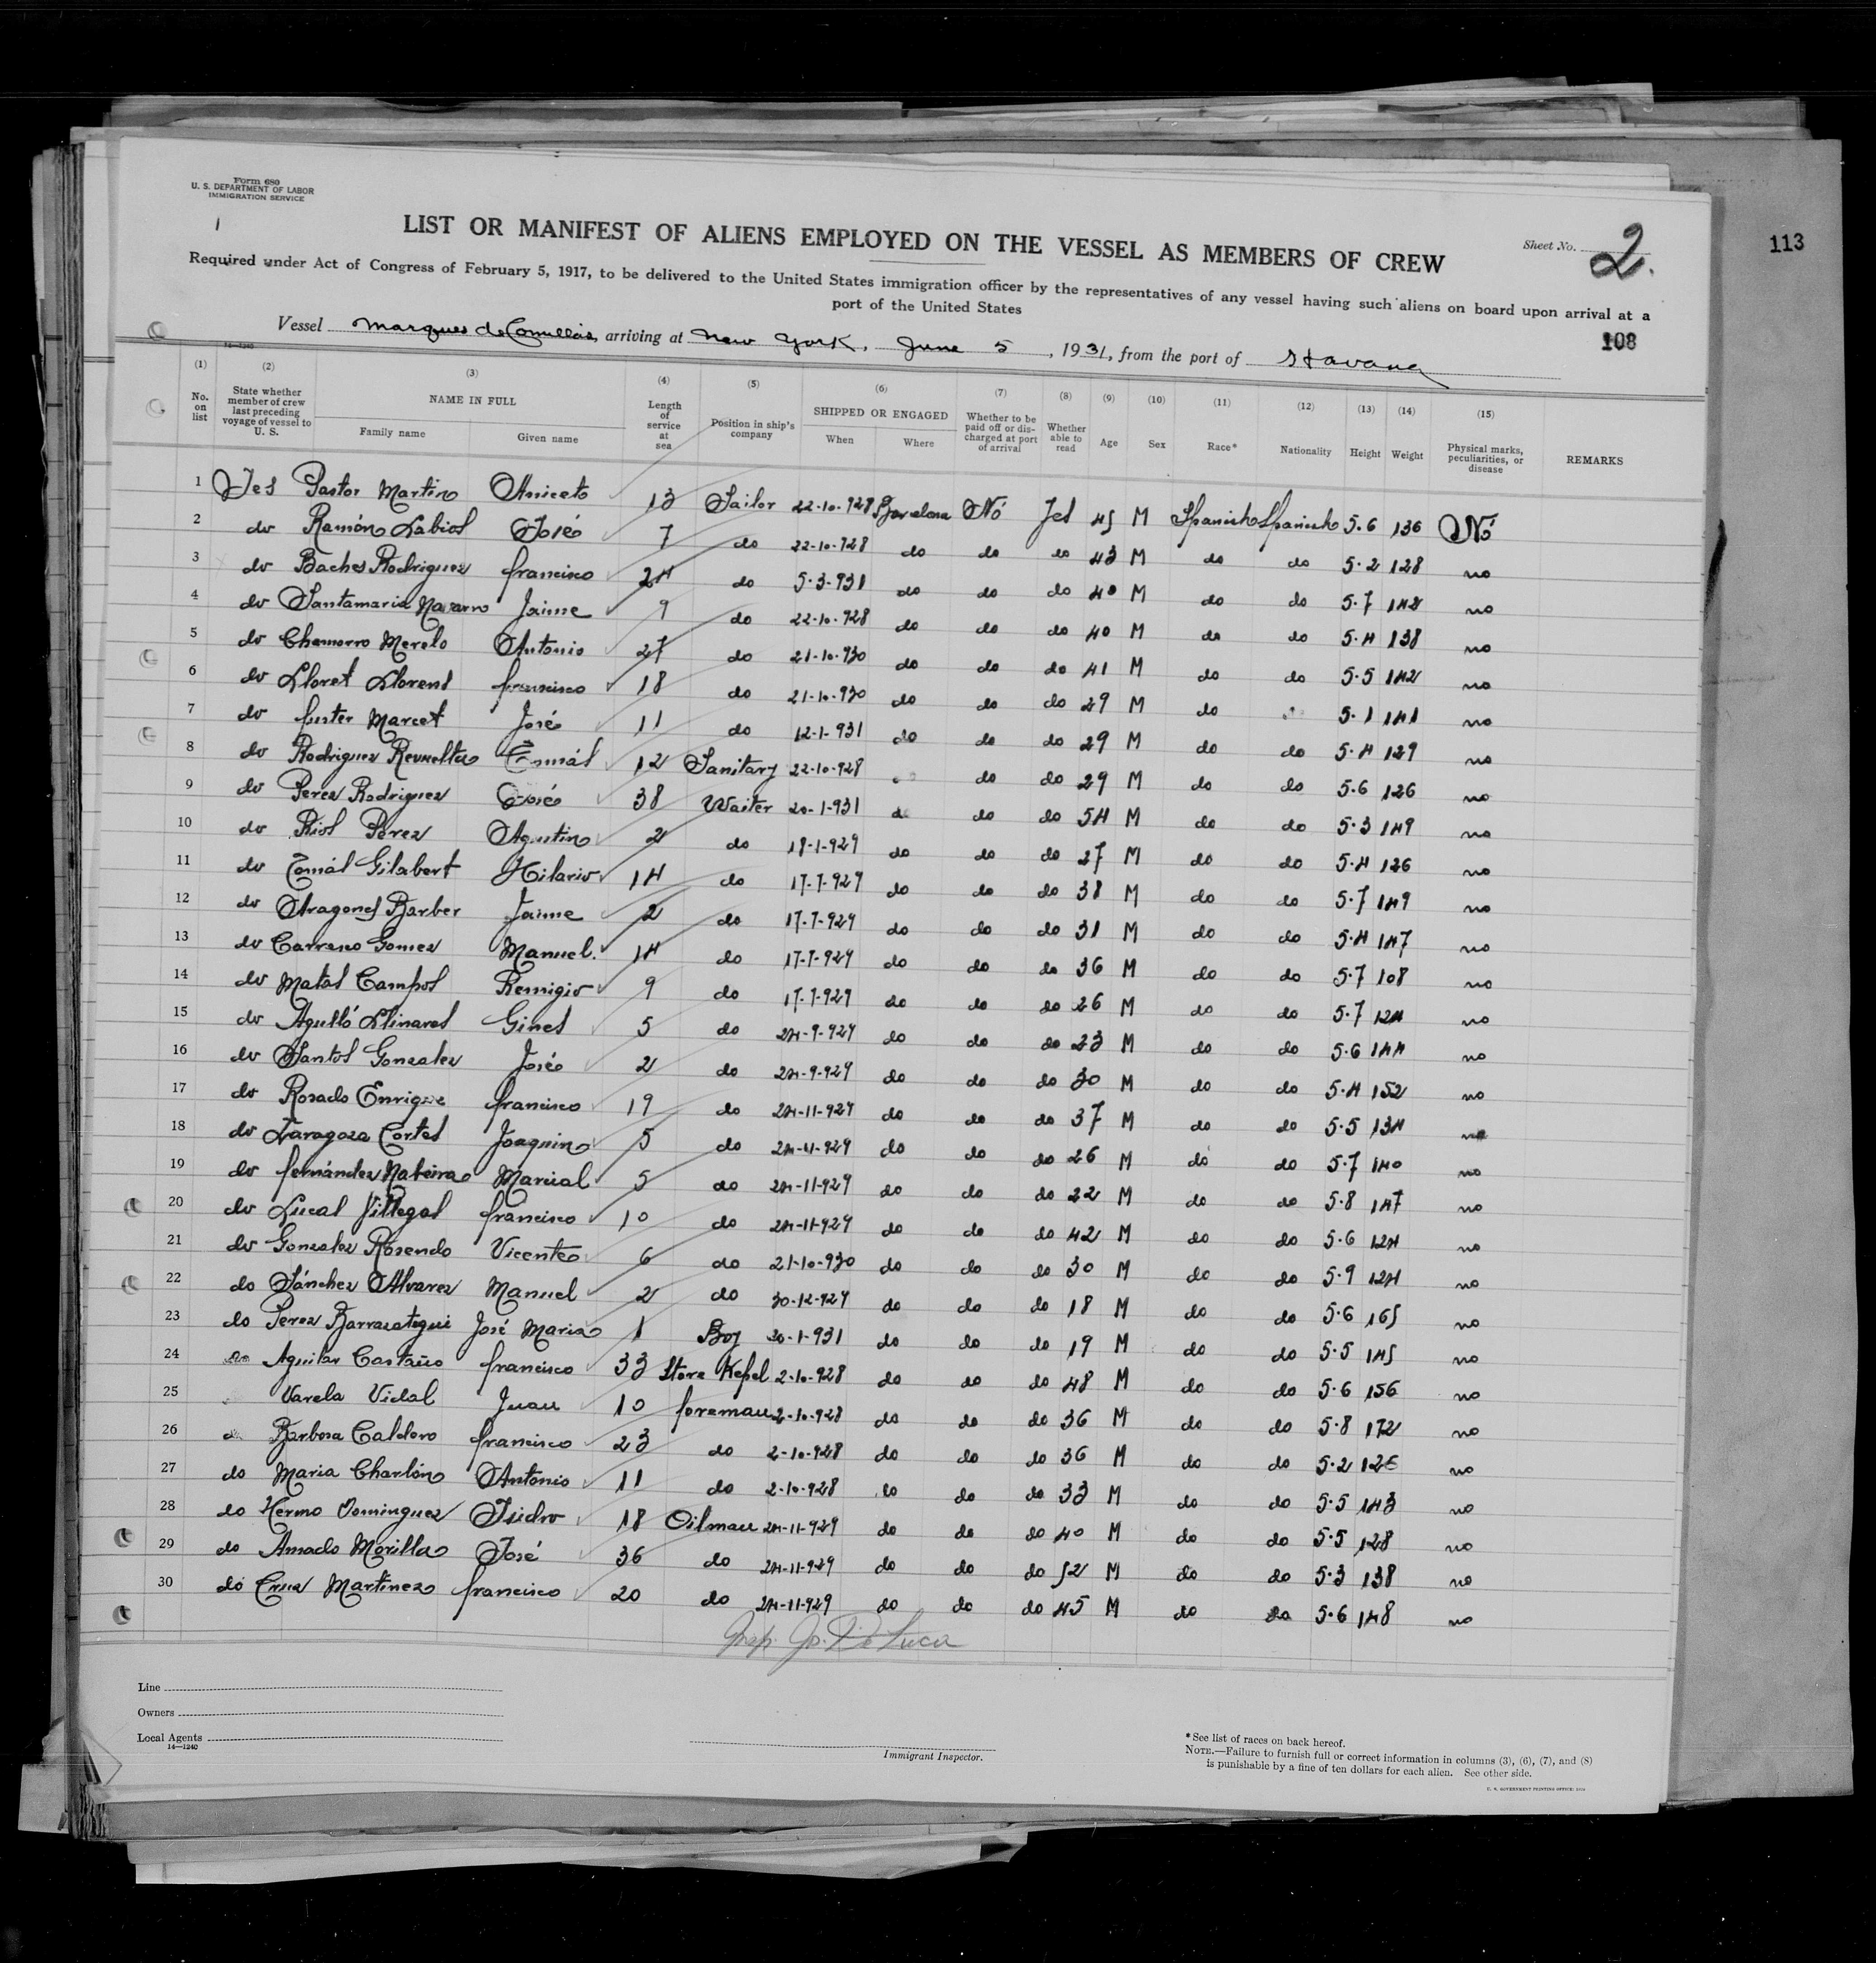 Form 680
U. S. DEPARTMENT OF LABOR
IMMIGRATION SERVICE
LIST OR MANIFEST OF ALIENS EMPLOYED ON THE VESSEL AS MEMBERS OF CREW
Sheet No. 2.
113
Required under Act of Congress of February 5, 1917, to be delivered to the United States immigration officer by the representatives of any vessel having such aliens on board upon arrival at a
port of the United States
108
Vessel Marques de Comillas, arriving at New York, June 5, 1931, from the port of Havana
14—1240
(1) (2) (3) (4) (5) (6) (7) (8) (9) (10) (11) (12) (13) (14) (15)
No. on list State whether member of crew last preceding voyage of vessel to U. S. NAME IN FULL Family name Given name Length of service at sea Position in ship's company SHIPPED OR ENGAGED When Where Whether to be paid off or discharged at port of arrival Whether able to read Age Sex Race* Nationality Height Weight Physical marks, peculiarities, or disease REMARKS
1 Yes Pastor Martin Aniceto 13 Sailor 22-10-928 Barcelona Nó Yes 45 M Spanish Spanish 5.6 136 Nó
2 do Ramón Labios José 7 do 22-10-928 do do do 43 M do do 5.2 128 no
3 do Baches Rodriguez francisco 24 do 5-3-931 do do do 40 M do do 5.7 142 no
4 do Santamaria Navarro Jaime 9 do 22-10-928 do do do 40 M do do 5.4 138 no
5 do Chamorro Merelo Antonio 27 do 21-10-930 do do do 41 M do do 5.5 142 no
6 do Lloret Llorens francisco 18 do 21-10-930 do do do 29 M do 5.1 141 no
7 do fuster Marcet José 11 do 12-1-931 do do do 29 M do do 5.4 129 no
8 do Rodriguez Revuelta Tomás 12 Sanitary 22-10-928 do do 29 M do do 5.6 126 no
9 do Perez Rodriguez José 38 Waiter 20-1-931 do do do 54 M do do 5.3 149 no
10 do Rios Perez Agustin 2 do 19-1-929 do do do 27 M do do 5.4 126 no
11 do Tomás Gilabert Hilario 14 do 17-7-929 do do do 38 M do do 5.7 149 no
12 do Aragones Barber Jaime 2 do 17-7-929 do do do 31 M do do 5.4 147 no
13 do Carrasco Gomez Manuel. 14 do 17-7-929 do do do 36 M do do 5.7 108 no
14 do Matas Campos Remigio 9 do 17-7-929 do do do 26 M do do 5.7 124 no
15 do Agulló Llinares Gines 5 do 24-9-929 do do do 23 M do do 5.6 144 no
16 do Santos Gonzalez José 2 do 24-9-929 do do do 30 M do do 5.4 152 no
17 do Rosado Enrique francisco 19 do 24-11-929 do do do 37 M do do 5.5 134 no
18 do Zaragoza Cortes Joaquin 5 do 24-11-929 do do do 26 M do do 5.7 140 no
19 do fernández Nabeira Marcial 5 do 24-11-929 do do do 22 M do do 5.8 147 no
20 do Lucas Villegas francisco 10 do 24-11-929 do do do 42 M do do 5.6 124 no
21 do Gonzalez Rosendo Vicente 6 do 21-10-930 do do do 30 M do do 5.9 124 no
22 do Sánchez Alvarez Manuel 2 do 30-12-929 do do do 18 M do do 5.6 165 no
23 do Perez Barrazategui José Maria 1 Boy 20-1-931 do do do 19 M do do 5.5 145 no
24 do Aguilar Castaño francisco 33 Store Kepel 2-10-928 do do do 48 M do do 5.6 156 no
25 Varela Vidal Juan 10 foreman 2-10-928 do do do 36 M do do 5.8 172 no
26 do Barbosa Caldero francisco 23 do 2-10-928 do do do 36 M do do 5.2 126 no
27 do Maria Charlón Antonio 11 do 2-10-928 do do do 33 M do do 5.5 143 no
28 do Hermo Dominguez Isidro 18 Oilman 24-11-929 do do do 40 M do do 5.5 128 no
29 do Amado Morilla José 36 do 24-11-929 do do do 52 M do do 5.3 138 no
30 do Cruz Martinez francisco 20 do 24-11-929 do do do 45 M do do 5.6 148 no
Insp. Jo. De Luca
Line
Owners
Local Agents
14—1240
Immigrant Inspector.
*See list of races on back hereof.
NOTE.—Failure to furnish full or correct information in columns (3), (6), (7), and (8)
is punishable by a fine of ten dollars for each alien. See other side.
U. S. GOVERNMENT PRINTING OFFICE